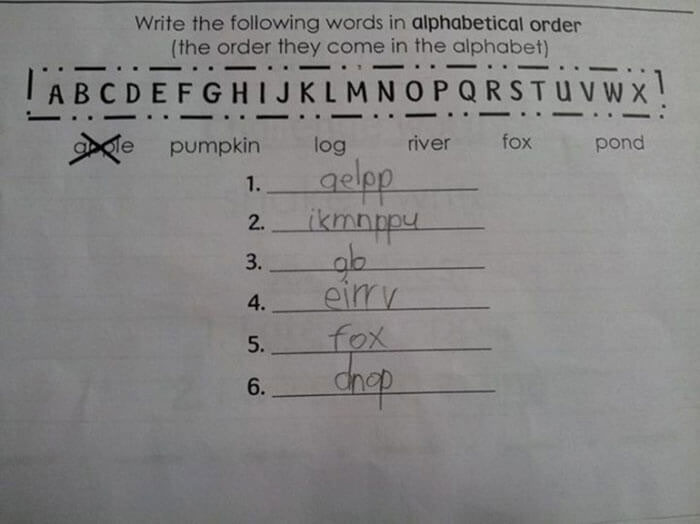 Write the following words in alphabetical order
(the order they come in the alphabet)
A B C D E F G H I J K L M N O P Q R S T U V W X
apple pumpkin log river fox pond
1. aelpp
2. ikmnppu
3. glo
4. eirrv
5. fox
6. dnop